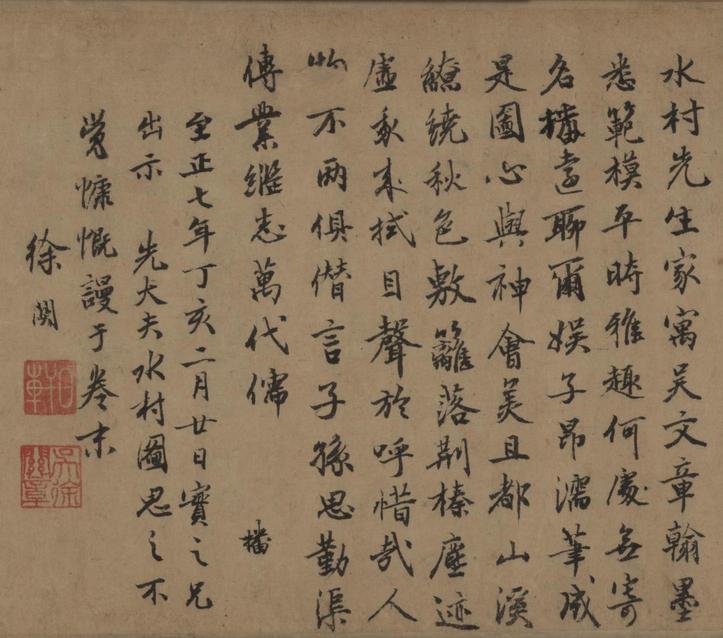 水村先生家寓吴文章翰墨
悉範模平時雅趣何處無寄
名播遠聊爾娱子昂濡筆成
是圖心與神會美且都山溪
繚繞秋色敷籬落荆榛塵迹
虚我來拭目聲於呼惜哉人
物不兩俱僭言子孫思勤渠
傳業繼志萬代儒
播
至正七年丁亥二月廿日實之兄
出示 先大夫水村圖思之不
覺慷慨謾于卷末
徐関